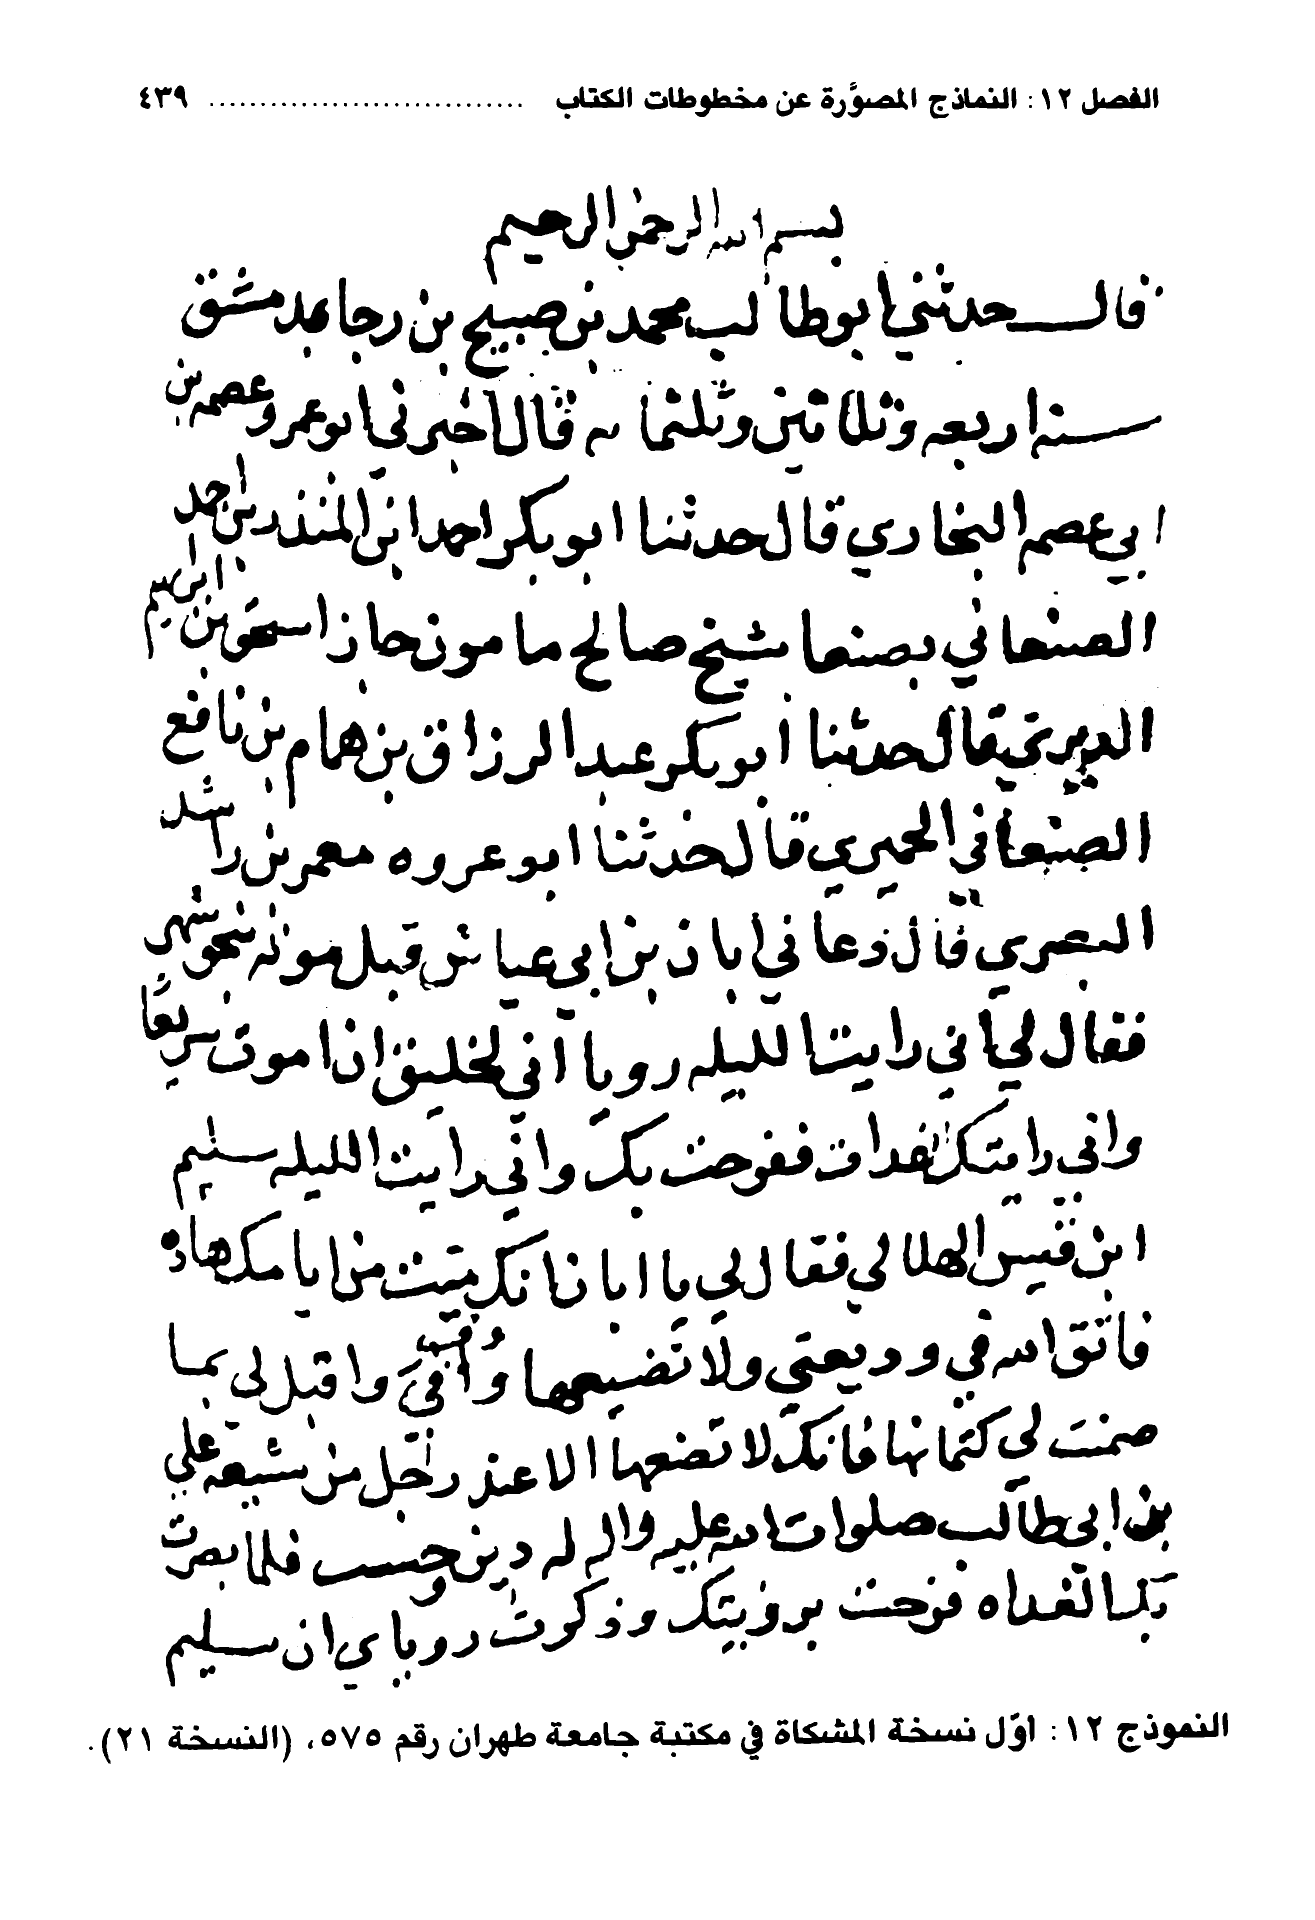 الفصل ١٢: النماذج المصوَّرة عن مخطوطات الكتاب .............................. ٤٣٩
بسم الله الرحمن الرحيم
قال حدثني ابو طالب محمد بن صبيح بن رجا بدمشق
سنه اربعه وثلاثين وثلثمايه قال اخبرني ابو عمرو عصمه بن
ابي عصمه البخاري قال حدثنا ابو بكر احمد ابن المنذر بن احمد
الصنعاني بصنعا شيخ صالح مامون جار اسحق بن ابرهيم
الديري قال حدثنا ابو بكر عبد الرزاق بن همام بن نافع
الصنعاني الحميري قال حدثنا ابو عروه معمر بن راشد
البصري قال دعاني ابان بن ابي عياش قبل موته بنحو شهر
فقال لي اني رايت الليله رويا اني لخليق ان اموت سريعا
واني رايتك الغداة ففرحت بك واني رايت الليله سليم
ابن قيس الهلالي فقال لي يا ابان انك ميت من ايامك هاذه
فاتق الله في وديعتي ولا تضيعها وَ في واقبل لي بما
ضمنت لي كتمانها فانك لا تضعها الا عند رجل من شيعه علي
بن ابي طالب صلوات الله عليه واله له دين وحسب فلما بصرت
بك الغداه فرحت برويتك وذكرت روياي ان سليم
النموذج ١٢: اوّل نسخة المشكاة في مكتبة جامعة طهران رقم ٥٧٥، (النسخة ٢١).